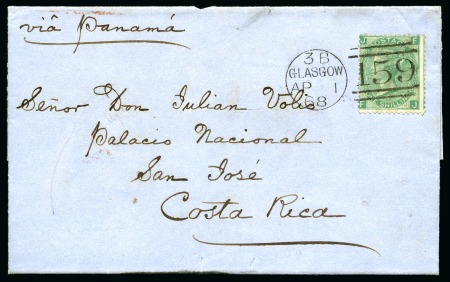 viâ Panamá
3B
GLASGOW
AP 1
68
159
Señor Don Julian Volio
Palacio Nacional
San José
Costa Rica